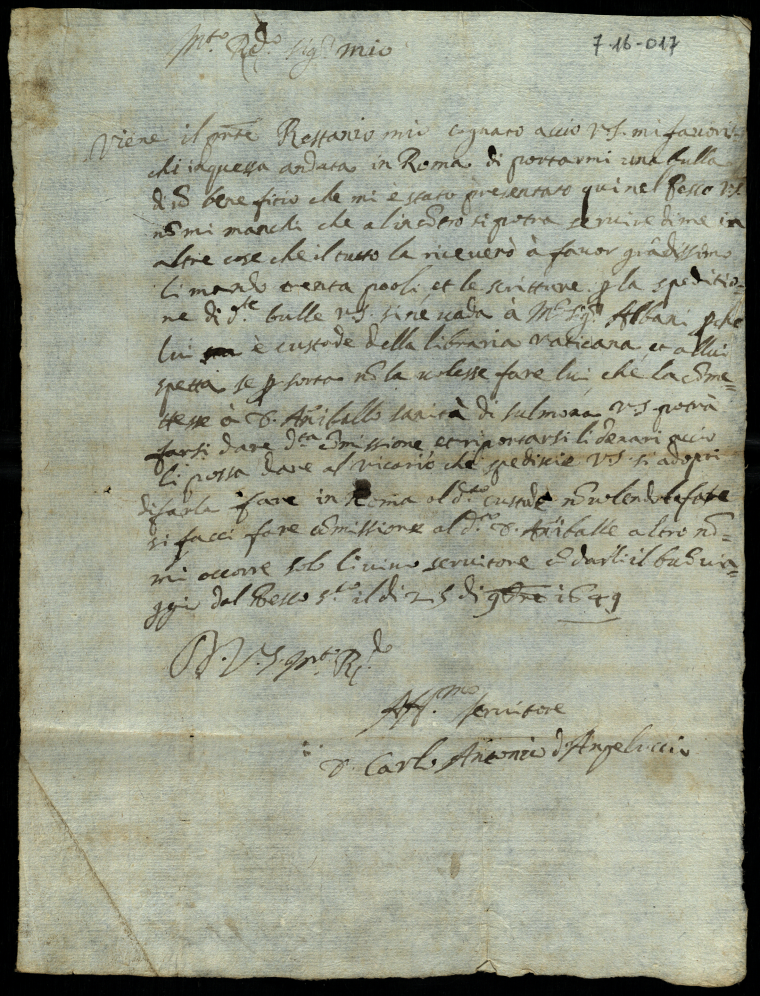 7-16-017
m.to R.do Sig.r mio
Viene il pnte Rostanio mio cognato acciò V.S. mi favoris=
chi in questa andata in Roma di portarmi una bulla
di ũ beneficio che mi è stato presentato qui nel Pesco V.S.
nõ mi manchi che al incõtro si potra servire di me in
altre cose che il tutto la riceverò à favor grãdissimo
li mando trenta paoli, et le scritture p la speditio=
ne di d.te bulle V.S. si ne vada à M.r Sig.r Albani pche
lui è custode della libraria vaticana, et a llui
spetta se p sorta nõ la volesse fare lui, che la cõme=
ttesse à D. Añiballo sanità di sulmona V.S potrà
farsi dare d.ta cõmissione et riportarsi li denari acciò
li possa dare al vicario che spedisce V.S. si adopri
di farla fare in Roma al d.to custode nõ volendola fare
si facci fare cõmissione al d.to D. Añiballe altro nõ=
mi occorre solo li vivo servitore cõ darli il buõ via=
ggio dal Pesco s.to il di 25 di 9bre 1649
D. V. S. m.to R.do
Aff.mo servitore
D. Carlo Antonio d'Angeluccio